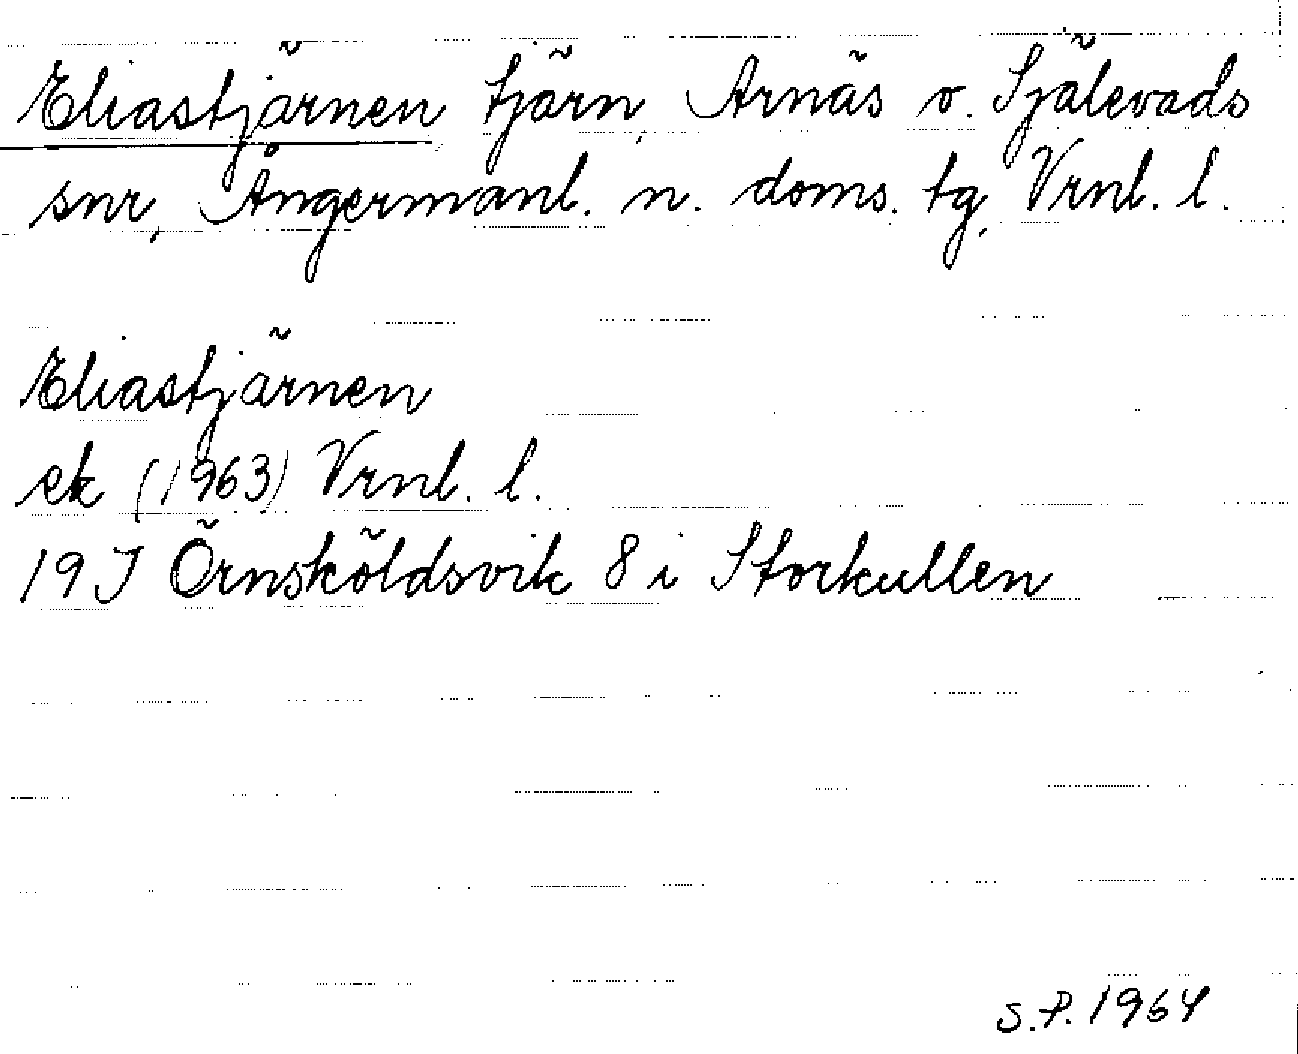 Eliastjärnen tjärn, Arnäs o. Själevads
snr, Ångermanl. n. doms. tg, Vrnl. l.
Eliastjärnen
ek (1963) Vrnl. l.
19 J Örnsköldsvik 8 i Storkullen
S.P. 1964